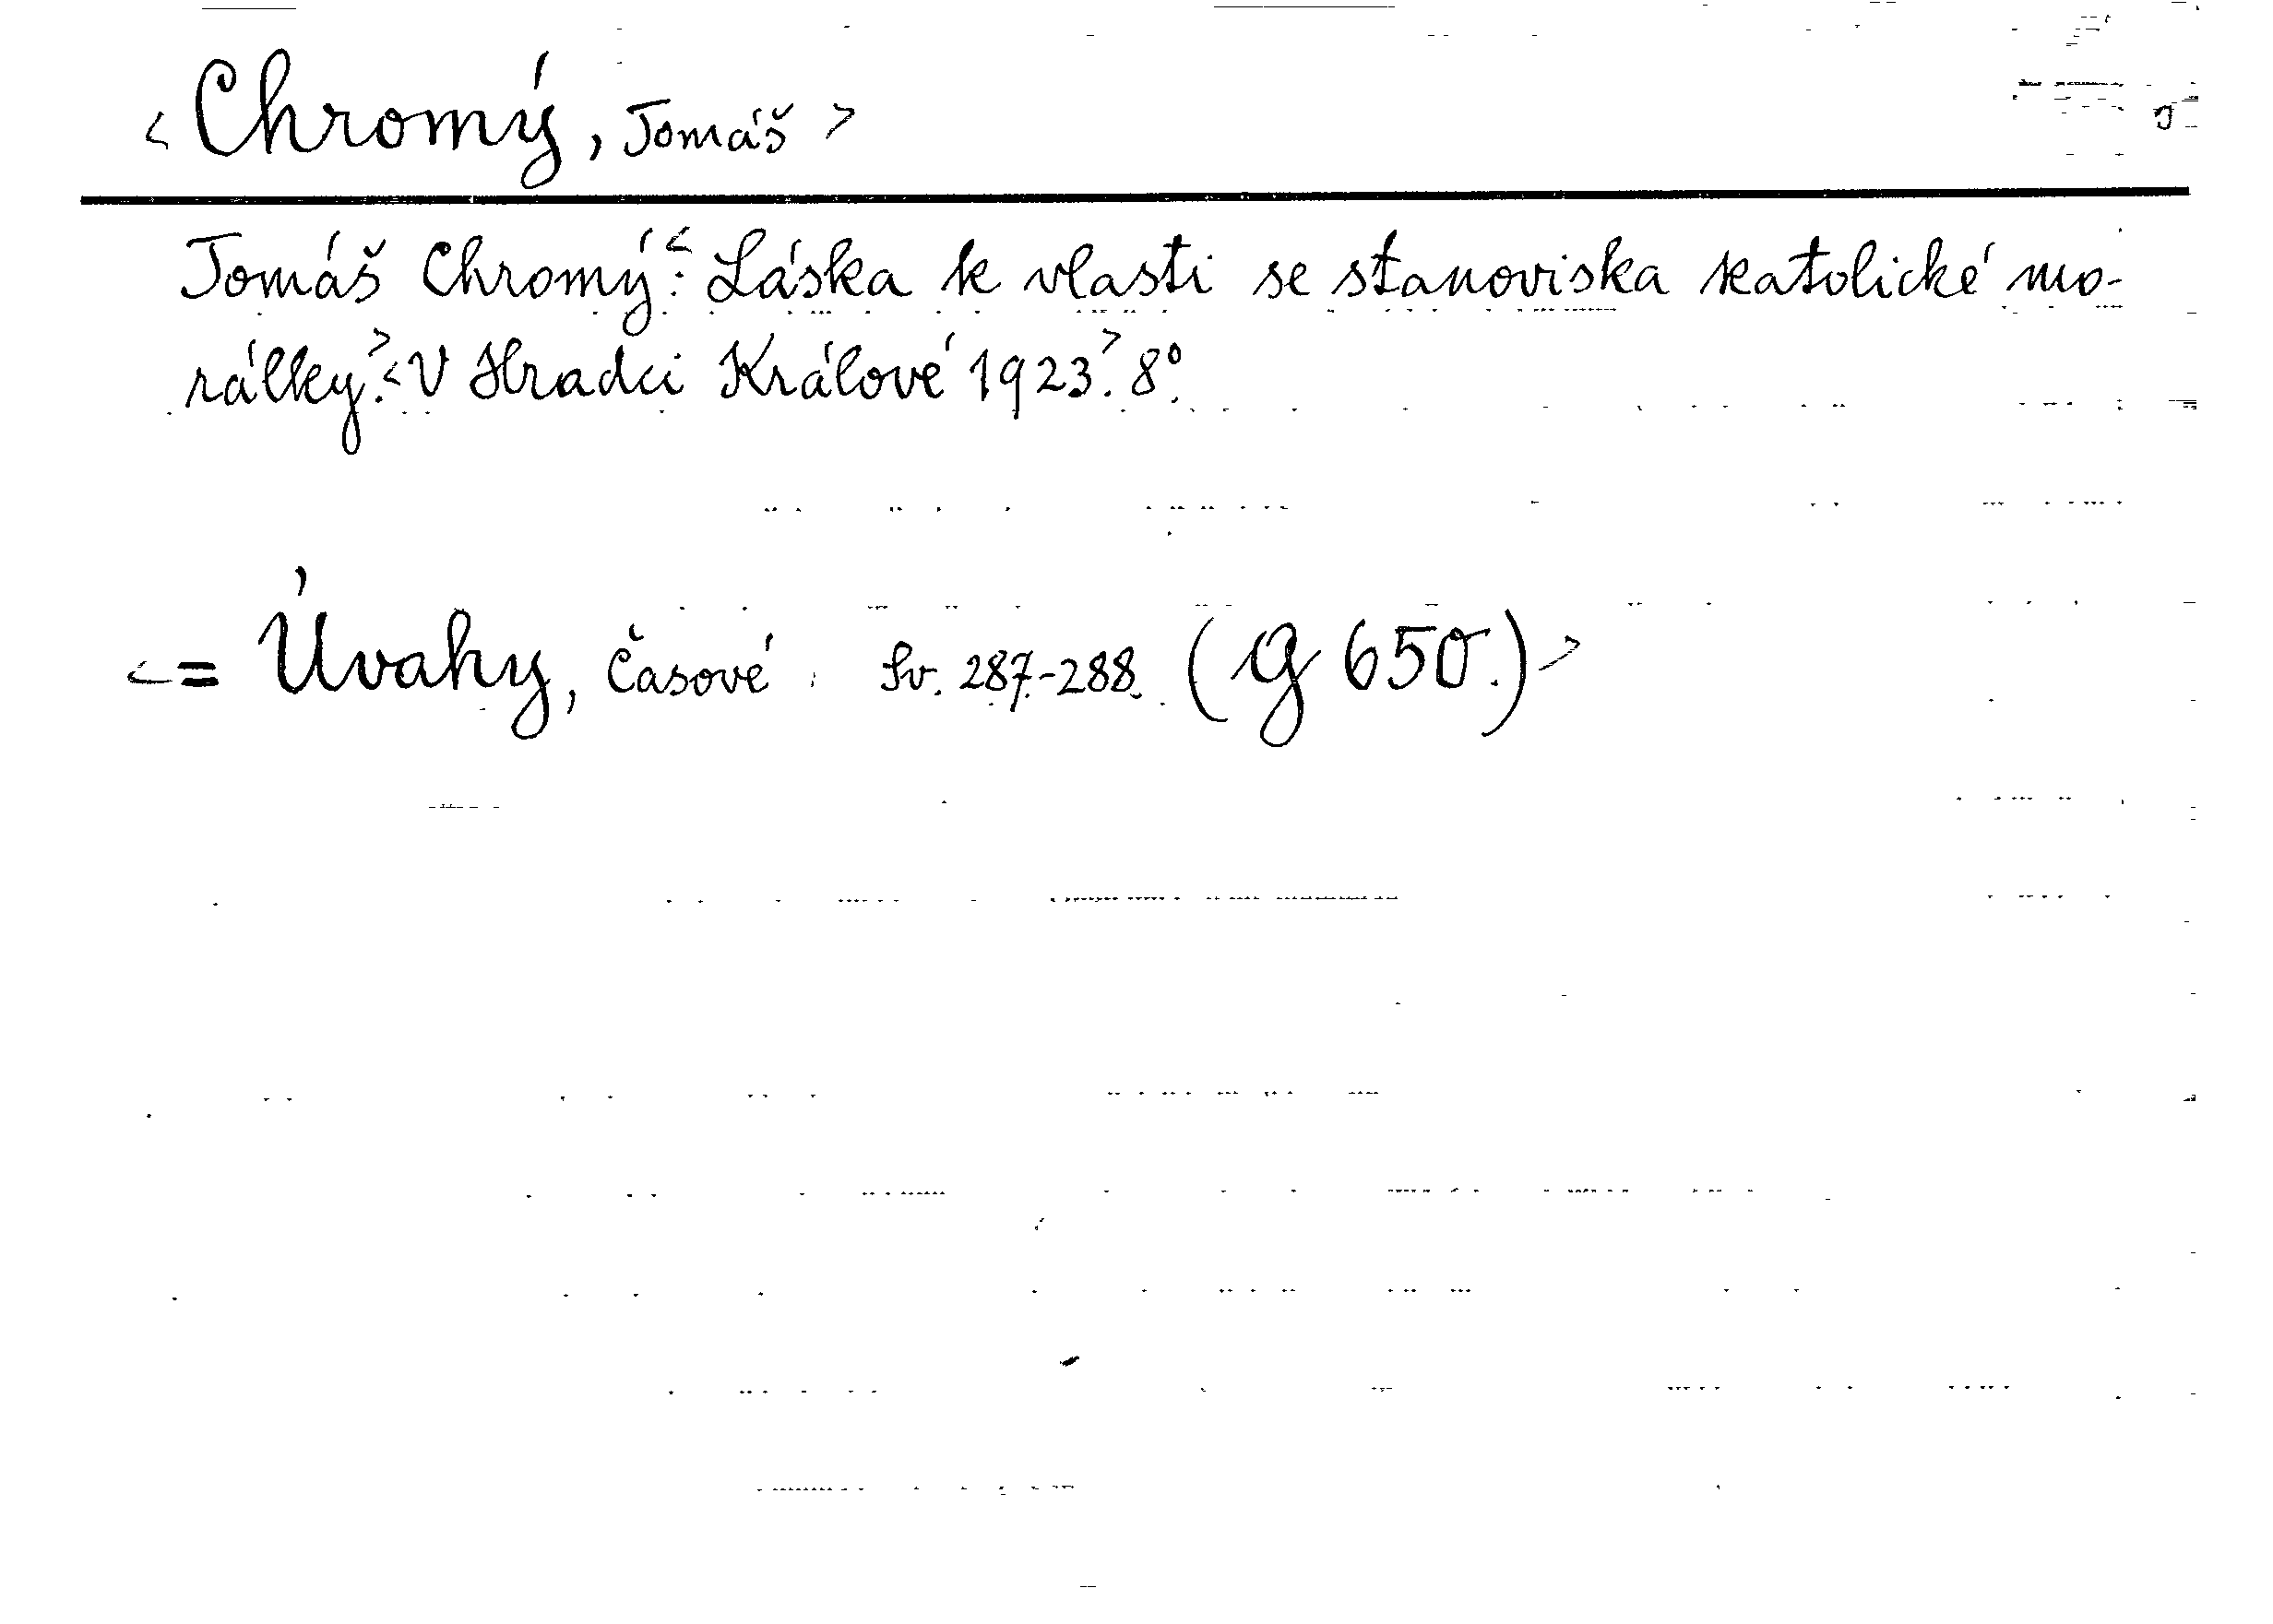 < Chromý, Tomáš >
Tomáš Chromý:< Láska k vlasti se stanoviska katolické mo-
rálky.> < V Hradci Králové 1923.> 8°.
< = Úvahy, časové. Sv. 287.-288. (G 650.) >